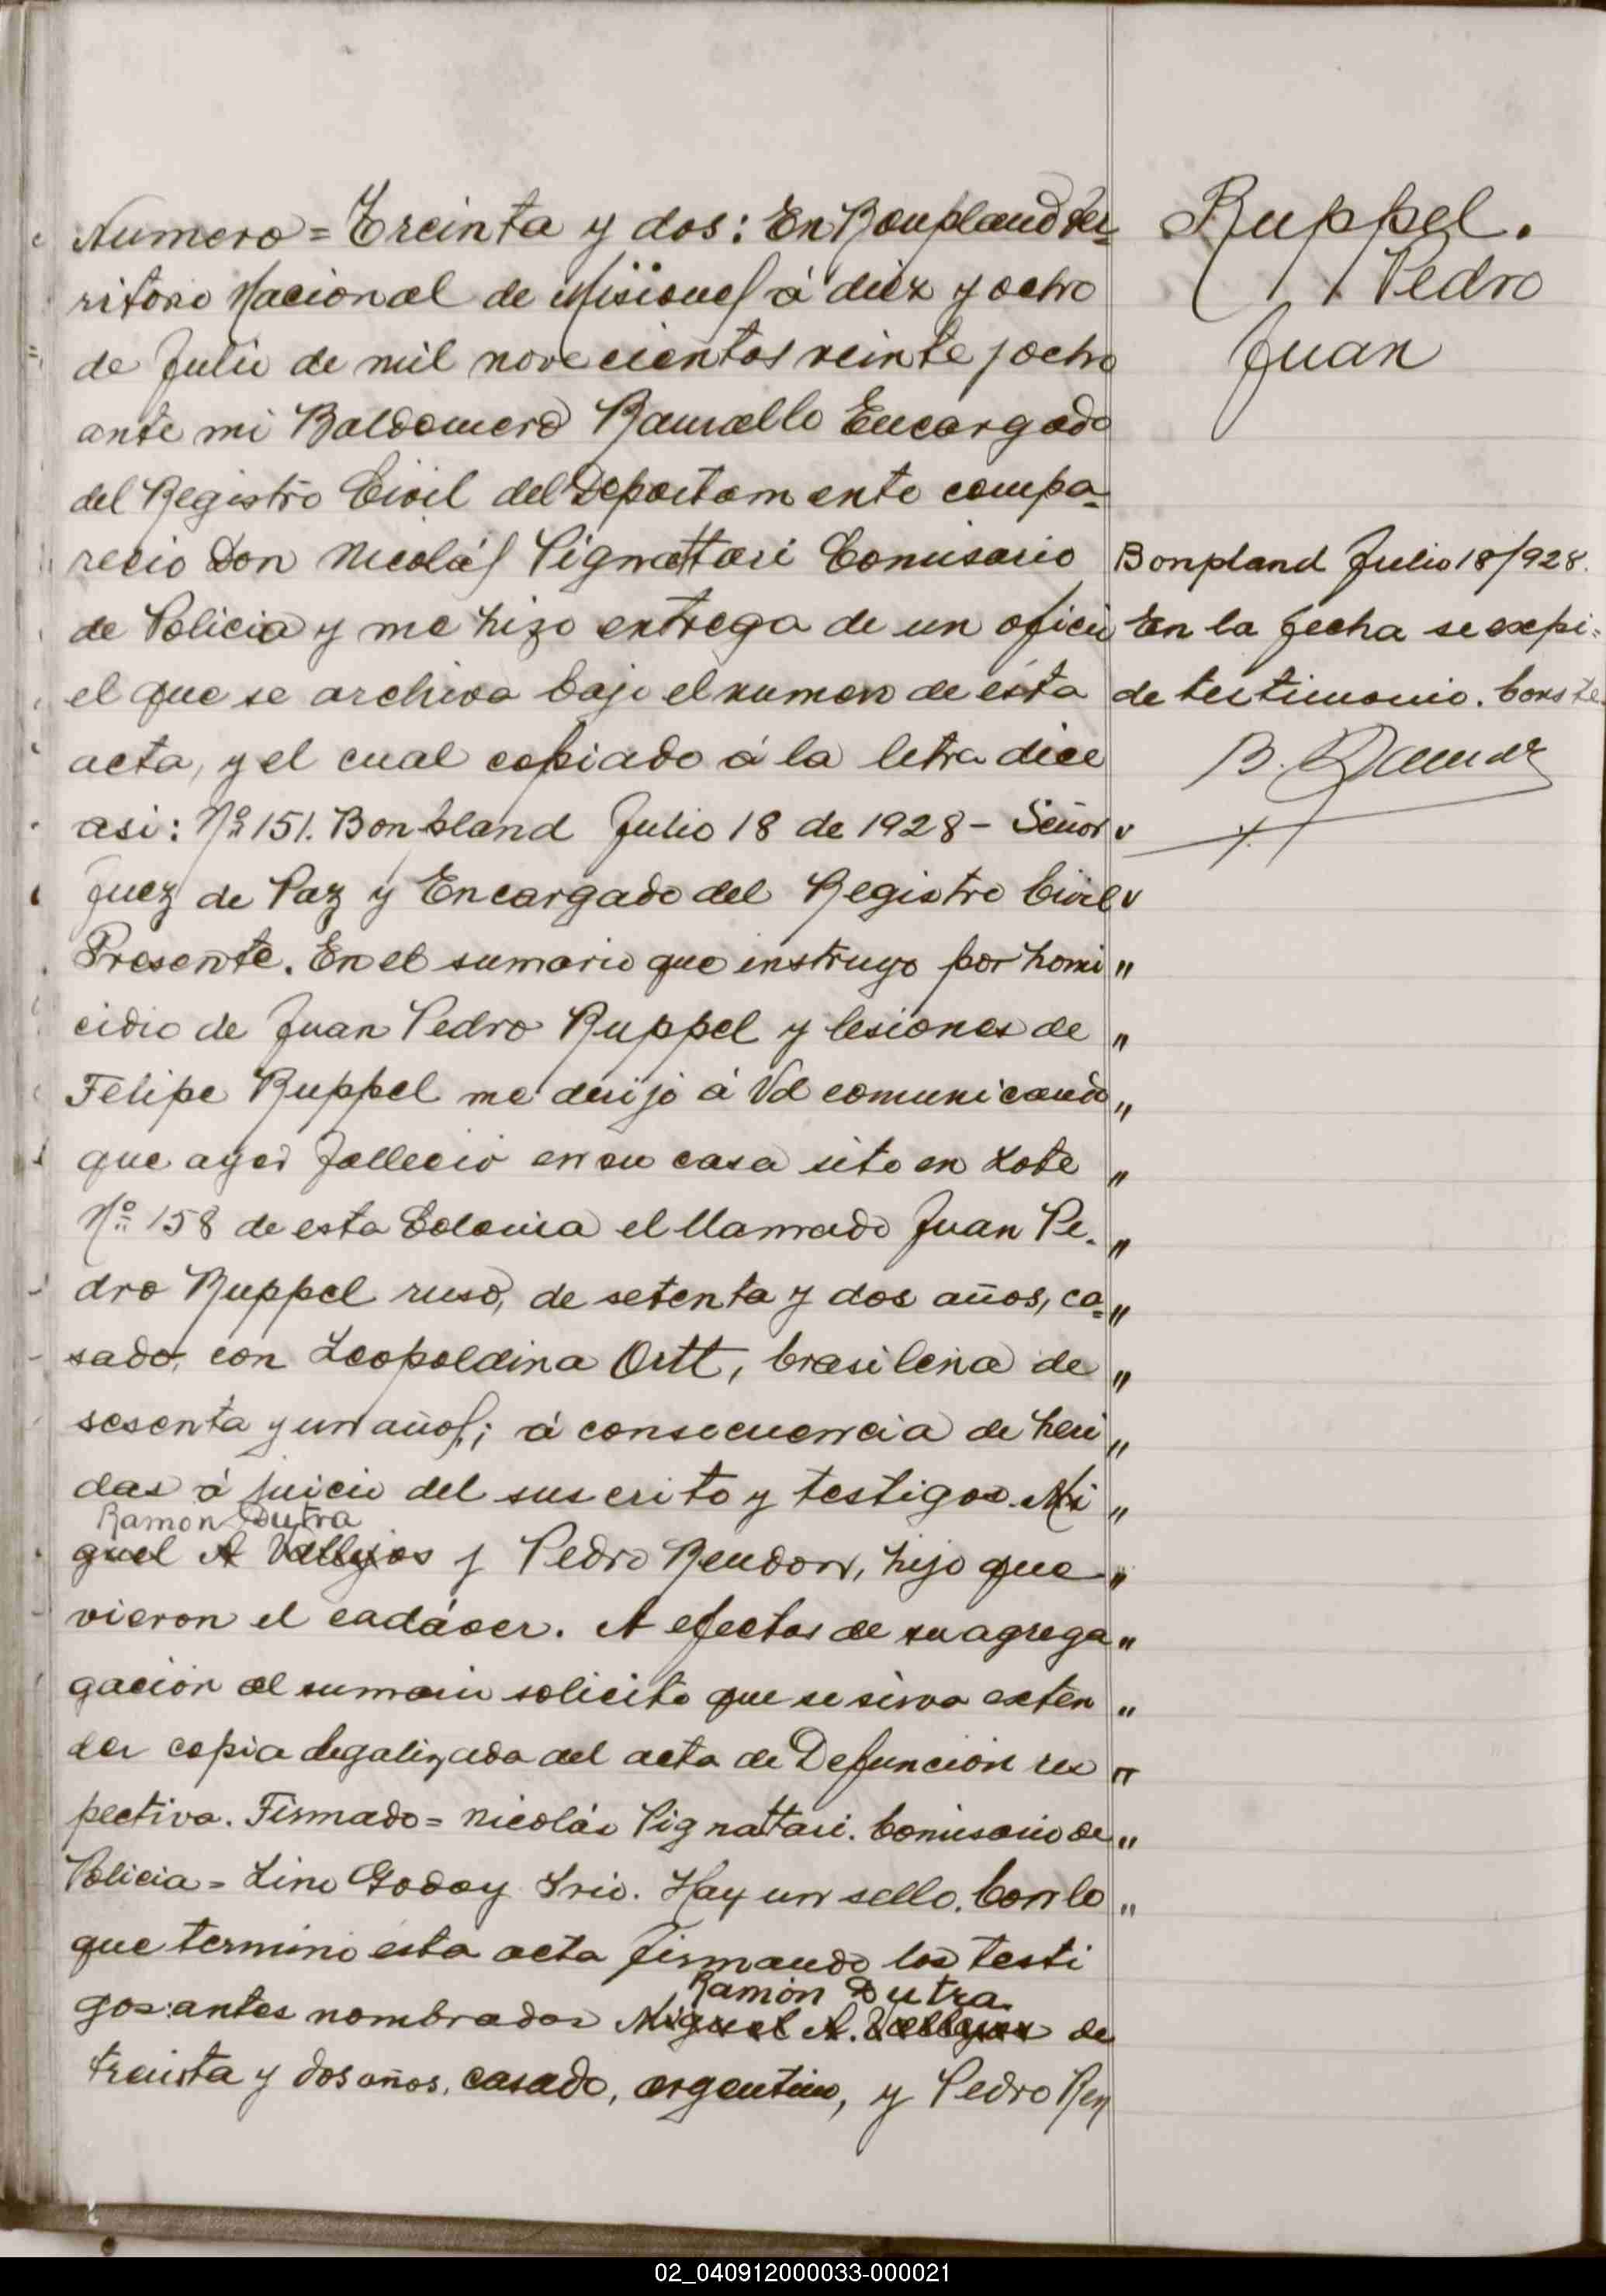 Numero = Treinta y dos: En Bonpland Ter-
ritorio Nacional de Misiones á diez y ocho
de Julio de mil novecientos veinte y ocho
ante mi Baldomero Encargado
del Registro Civil del Departamento compa-
recio Don Nicolás Pignattari Comisario
de Policia y me hizo entrega de un oficio
el que se archiva bajo el numero de ésta
acta, y el cual copiado á la letra dice
asi: Nº 151. Bonpland Julio 18 de 1928 - Señor v
Juez de Paz y Encargado del Registro Civil v
Presente. En el sumario que instruyo por homi "
cidio de Juan Pedro Ruppel y lesiones de "
Felipe Ruppel me dirijo á Vd comunicando "
que ayer fallecio en su casa sito en Lote "
Nº 158 de esta Colonia el llamado Juan Pe- "
dro Ruppel ruso, de setenta y dos años, ca- "
sado, con Leopoldina Ortt, brasilena de "
sesenta y un años; á consecuencia de heri "
das á juicio del suscrito y testigos Mi "
Ramon Dutra
guel A Vallejos y Pedro Rendon, hijo que "
vieron el cadáver. A efectos de su agrega "
gación al sumario solicito que se sirva exten "
der copia legalizada del acta de Defuncion res "
pectiva. Firmado = Nicolás Pignattari. Comisario de "
Policia = Lino Godoy Srio. Hay un sello. Con lo "
que termino esta acta firmando los testi
gos antes nombrados
Ramón Dutra.
Miguel A. Vallejos de
treinta y dos años, casado, argentino, y Pedro Ren
Ruppel.
Pedro
Juan
Bonpland Julio 18/928.
En la fecha se expi-
de testimonio. Conste.
02_040912000033-000021